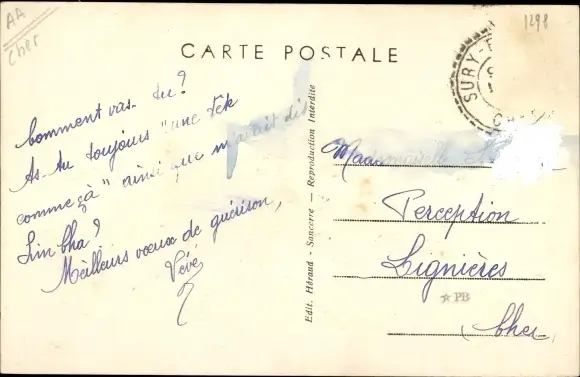 AA
Cher
1298
CARTE POSTALE
SURY-
Comment vas-tu?
As-tu toujours "une tek
comme çà" ainsi que m'avait dit
Lin Cha?
Meilleurs vœux de guérison,
Vévé
Edit. Héraud - Sancerre - Reproduction Interdite
Mademoiselle
Perception
Lignières
☆ PB
(Cher)